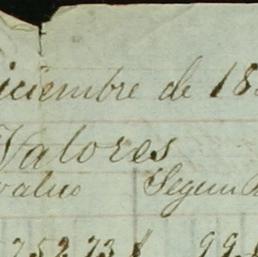 iciembre de 18
Valores
valuo Segun
25223 $ 99